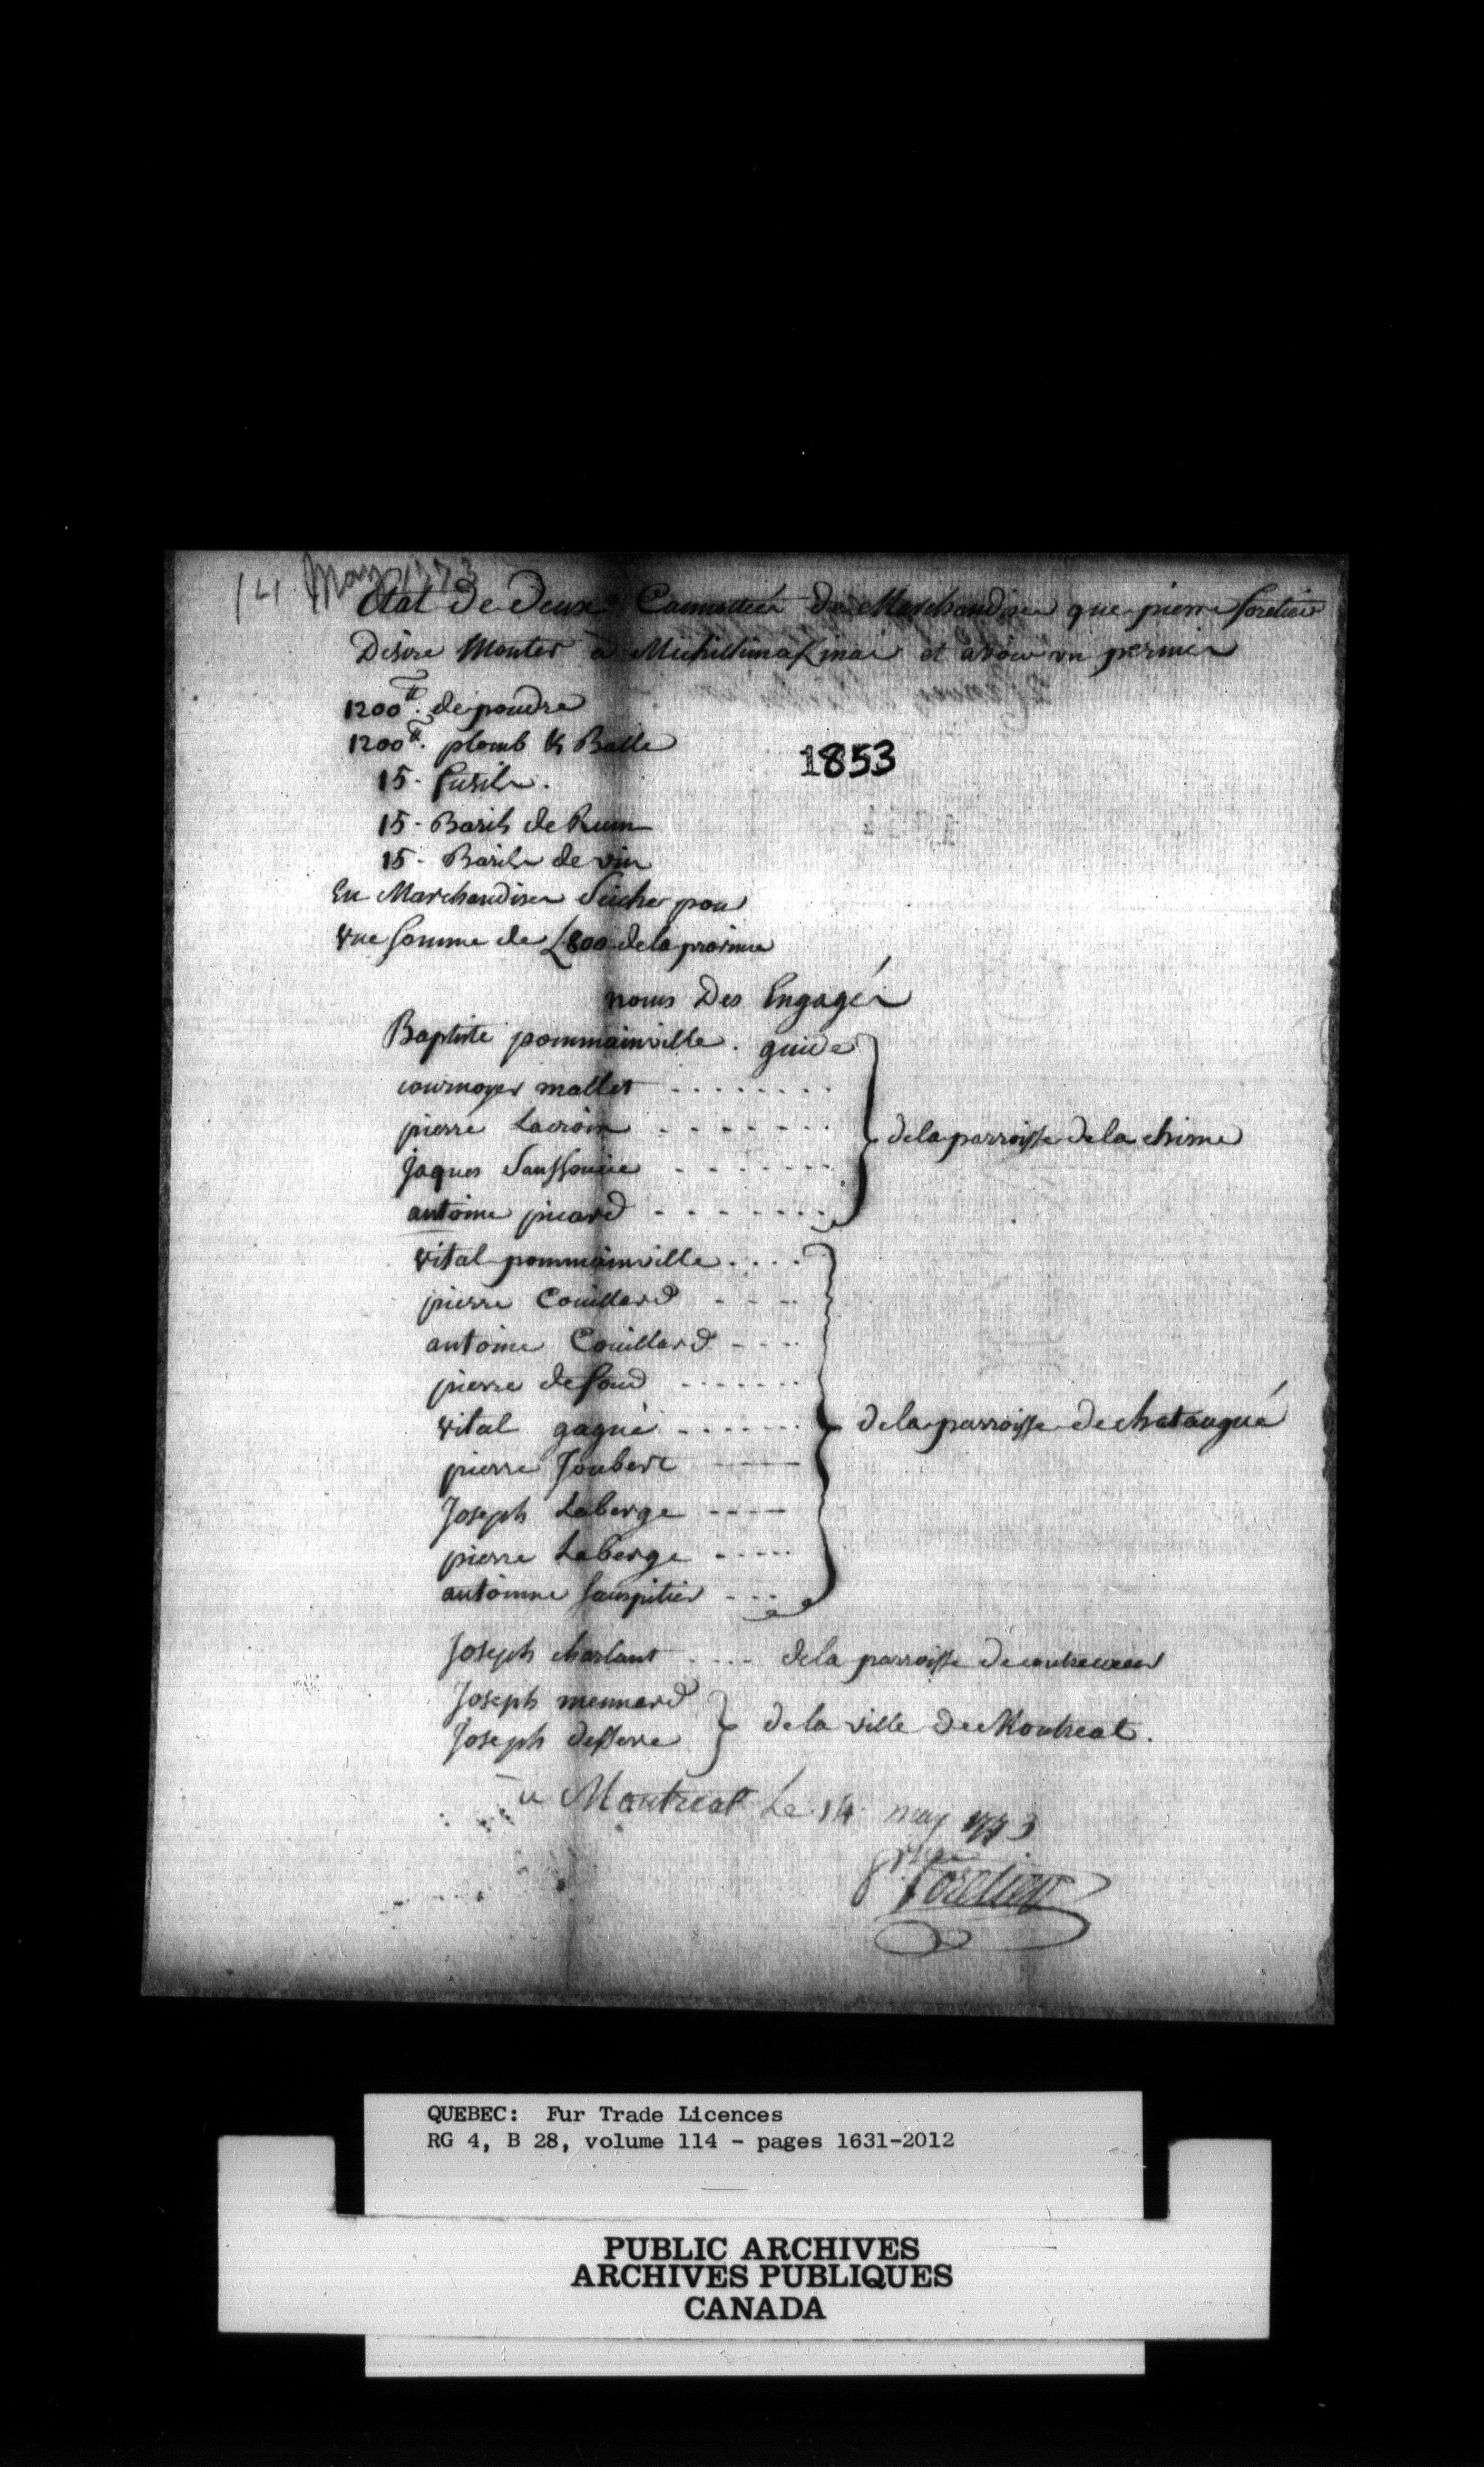 14 May 1773
Etat de deux Cannottées de Marchandises que pierre foretier
Désire Monter à Michillimakinai et avoir un permis
1200 ll. de poudre
1853
1200 ll. plomb & Balle
15 - fusils.
15 - Barils de Rum
15 - Barils de vin
En Marchandises Seiches pour
une Somme de £800 de la province
noms Des Engagés
Baptiste pommainville. guide
cournoyer mallet
pierre Lacroix
de la parroisse de la chinne
Jaques Sanssoucie
antoine picard
vital pommainville
pierre Couillard
antoine Couillard
pierre defond
vital gagné de la parroisse de chataugué
pierre Joubert
Joseph Laberge
pierre Laberge
antoinne sanspitier
Joseph charlant de la parroisse de contrecoeur
Joseph mennard
Joseph desserre de la ville de Montreal.
a Montreal Le 14 may 1773
Foretier
QUEBEC: Fur Trade Licences
RG 4, B 28, volume 114 - pages 1631-2012
PUBLIC ARCHIVES
ARCHIVES PUBLIQUES
CANADA